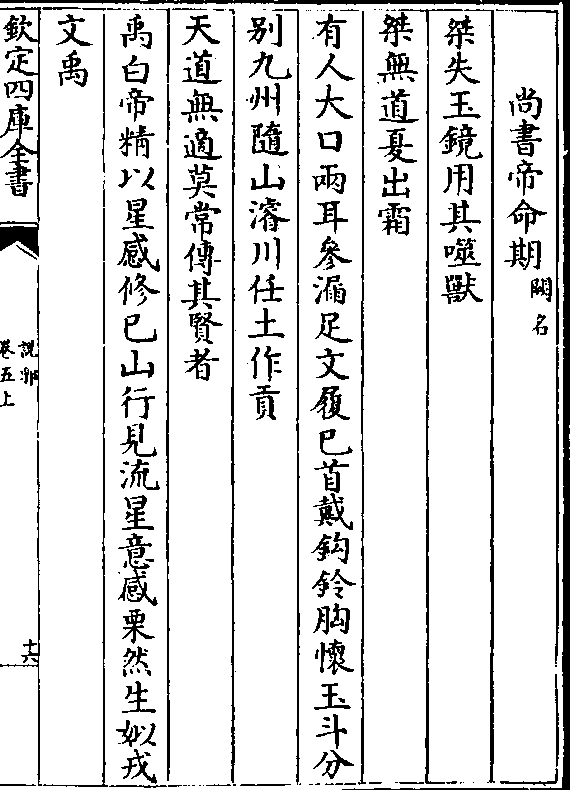 尚書帝命期 闕名
桀失玉鏡用其噬獸
桀無道夏出霜
有人大口兩耳參漏足文履巳首戴鈎鈴胸懷玉斗分
别九州隨山濬川任土作貢
天道無適莫常傳其賢者
禹白帝精以星感修巳山行見流星意感栗然生姒戎
文禹
欽定四庫全書
說郛
卷五上
十六